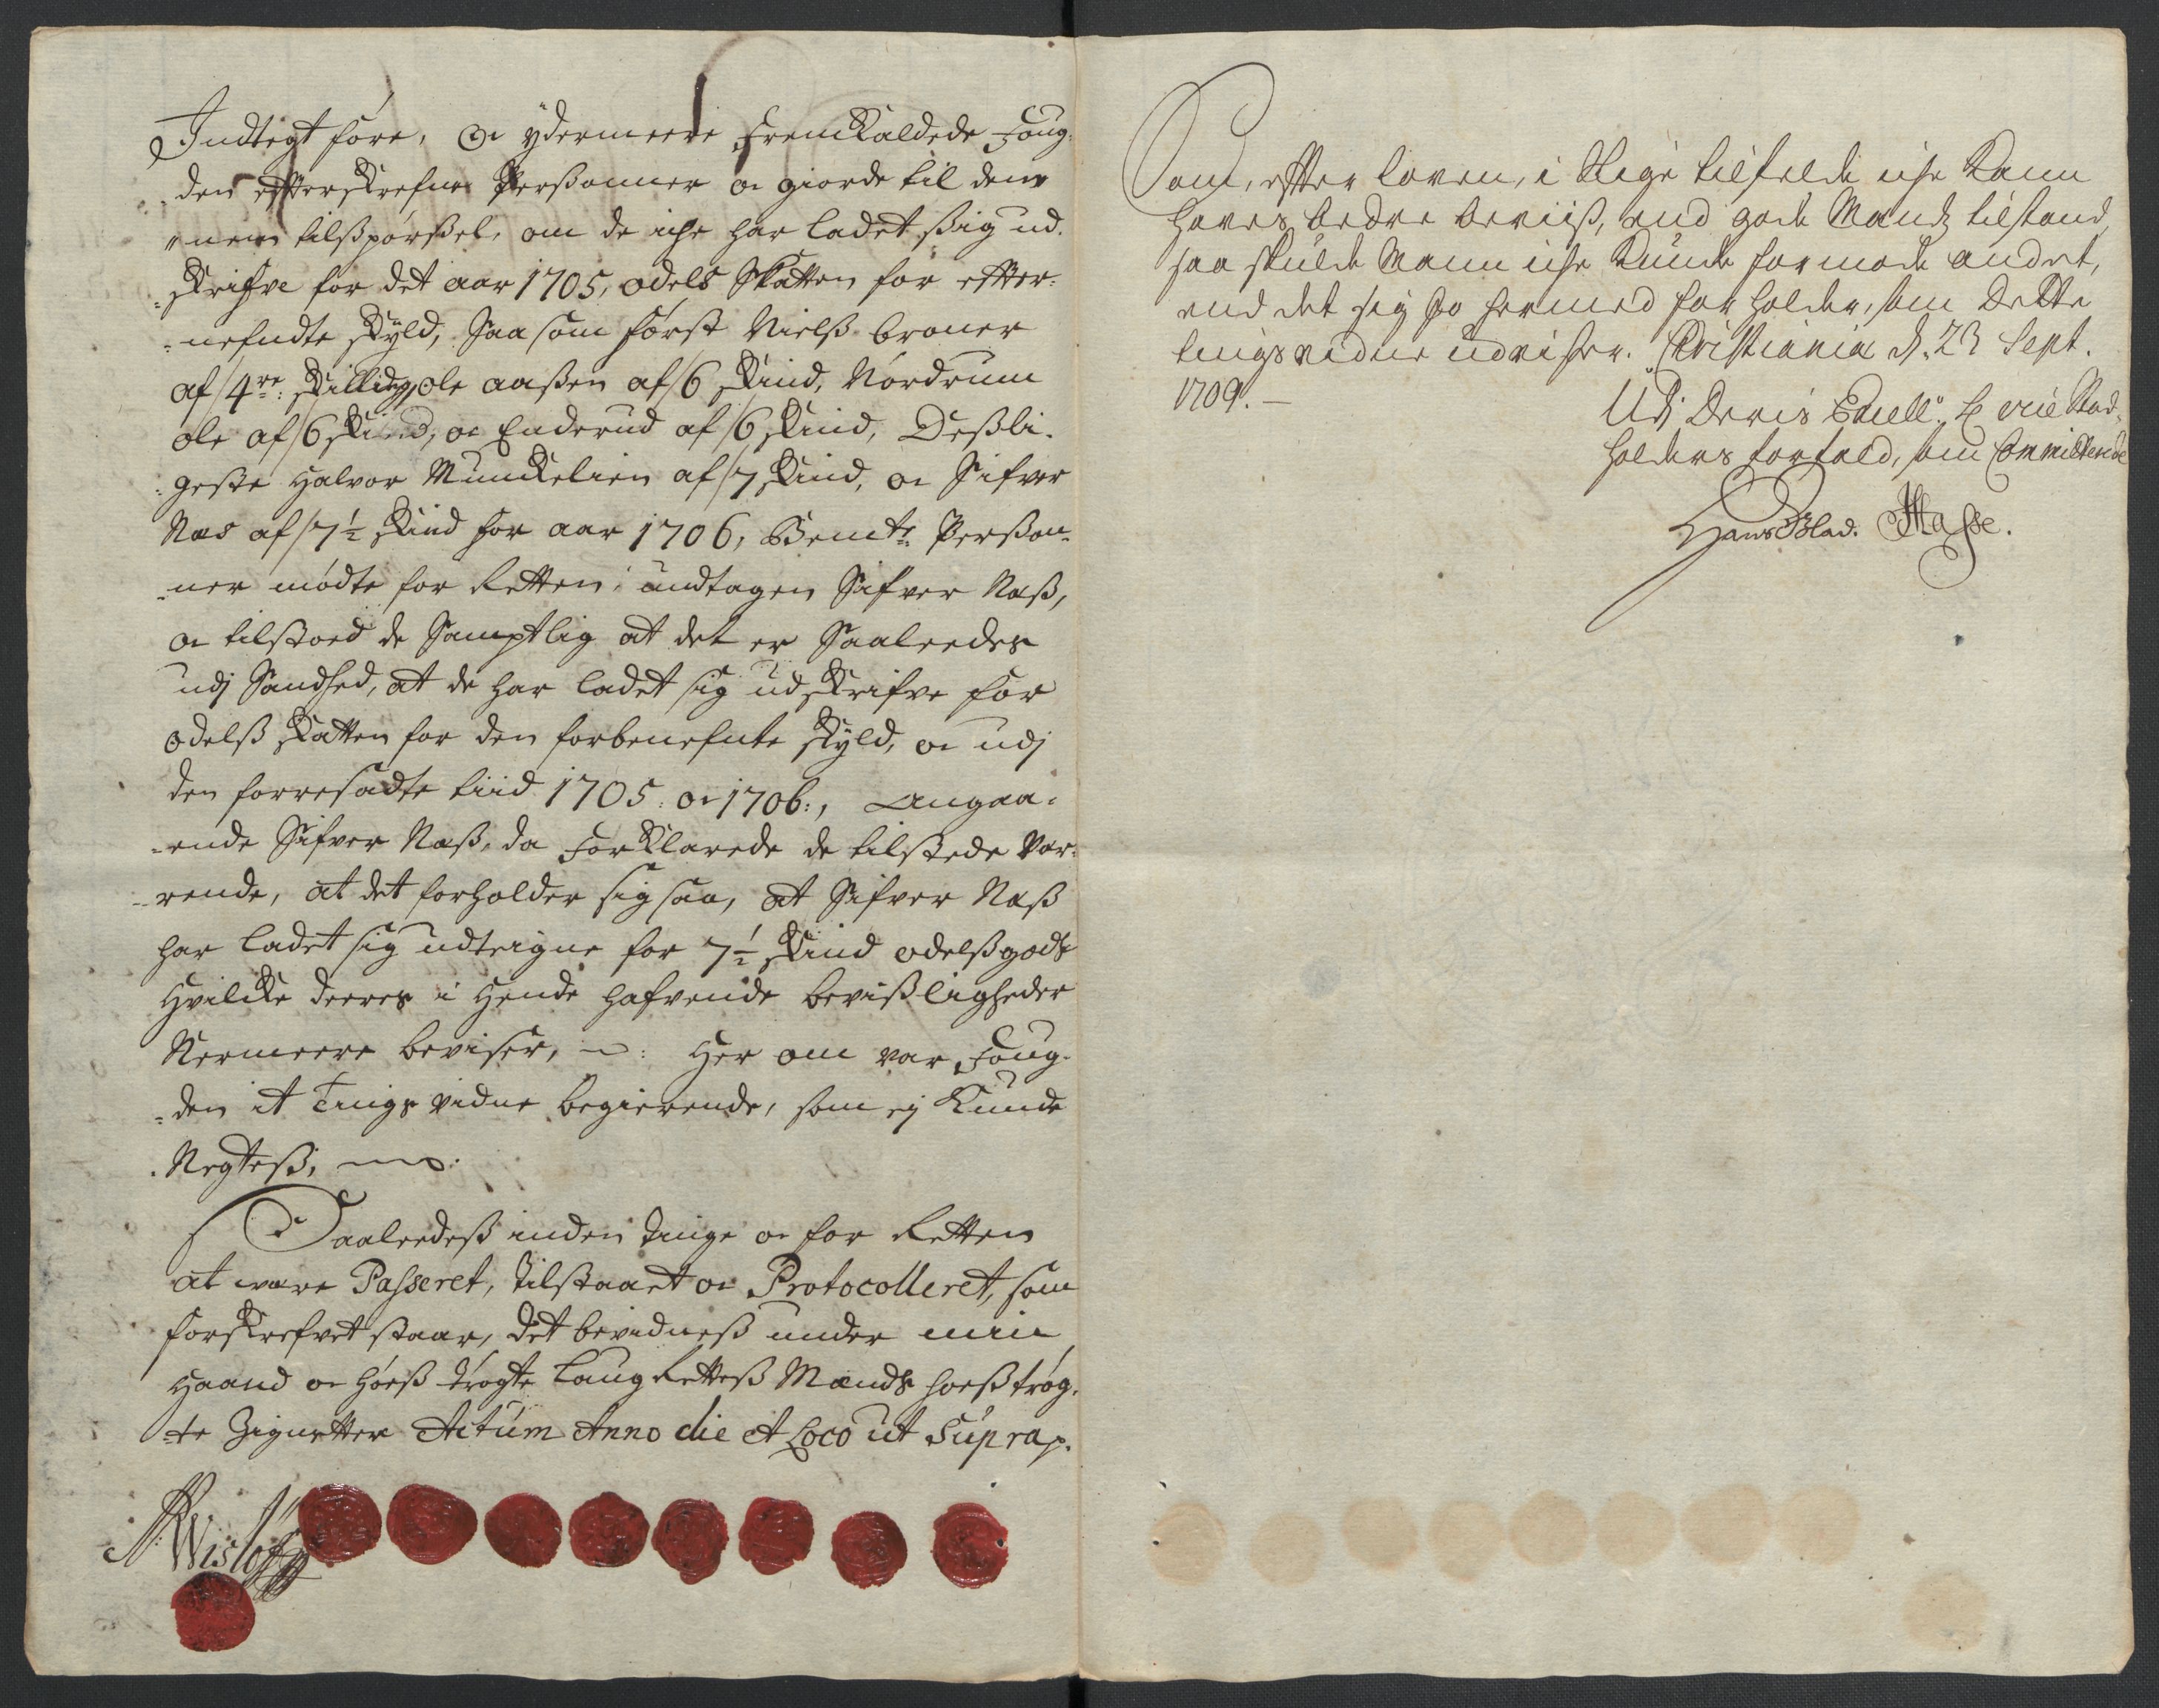 Indtegt føre, Oc ydermeere fremkaldede foug-
den efterskrefne Perßonner oc giorde til dem
tilspørßel, om de iche har ladet ßig ud-
skrifve for det aar 1705, odels Skatten for efter-
nefndte skyld, Saasom først Nielß broner
af 4re: skilling, ole aaßen af 6 skind, Nordrum
ole af 6 skind, oc Enderud af 6 skind, Deßli-
geste Halvor Munckelien af 7 skind, oc Sifver
Næs af 7½ skind for aar 1706, Bemte Perßon-
ner mødte for Retten, undtagen Sifver Næß,
oc tilstoed de Samptlig at det er Saaleedes
udj Sandhed, at de har ladet sig udskrifve for
odelß skatten for den forbenefnte skyld, oc udj
den forresadte tiid 1705. oc 1706:, Angaa-
ende Sifver Næß, da forklarede de tilstede Vær-
rende, at det forholder sig saa, at Sifver Næß
har ladet sig udteigne for 7½ skind odelßgods
Hvilcke deeres i Hende hafvende bevißligheder
Nermeere beviser, Her om var foug-
den it Tings vidne begierende, som ej Kunde
Negteß,
Saaleedeß inden Tinge oc for Retten
at være Passeret, tilstaaet oc Protocolleret, som
forskrefvet staar, Det bevidneß under min
Haand oc hoeß trøgte Laug Retteß Mænds hoeßtrøg-
te Zignetter Actum Anno die et Loco ut Supra
Wisløff
Som, efter loven, i slige tilfelde iche kann
haves bedre beviiß, end gode Mænds tilstand,
saa skulde Mann iche kunde formode andet,
end det sig jo hermed forholder, som dette
tingsvidne udviser. Christiania d. 23 Sept.
1709.
Udj Deris Excell: Hr vice Stad-
holders forfald, som Committerede
Hans Blad. Hasse.